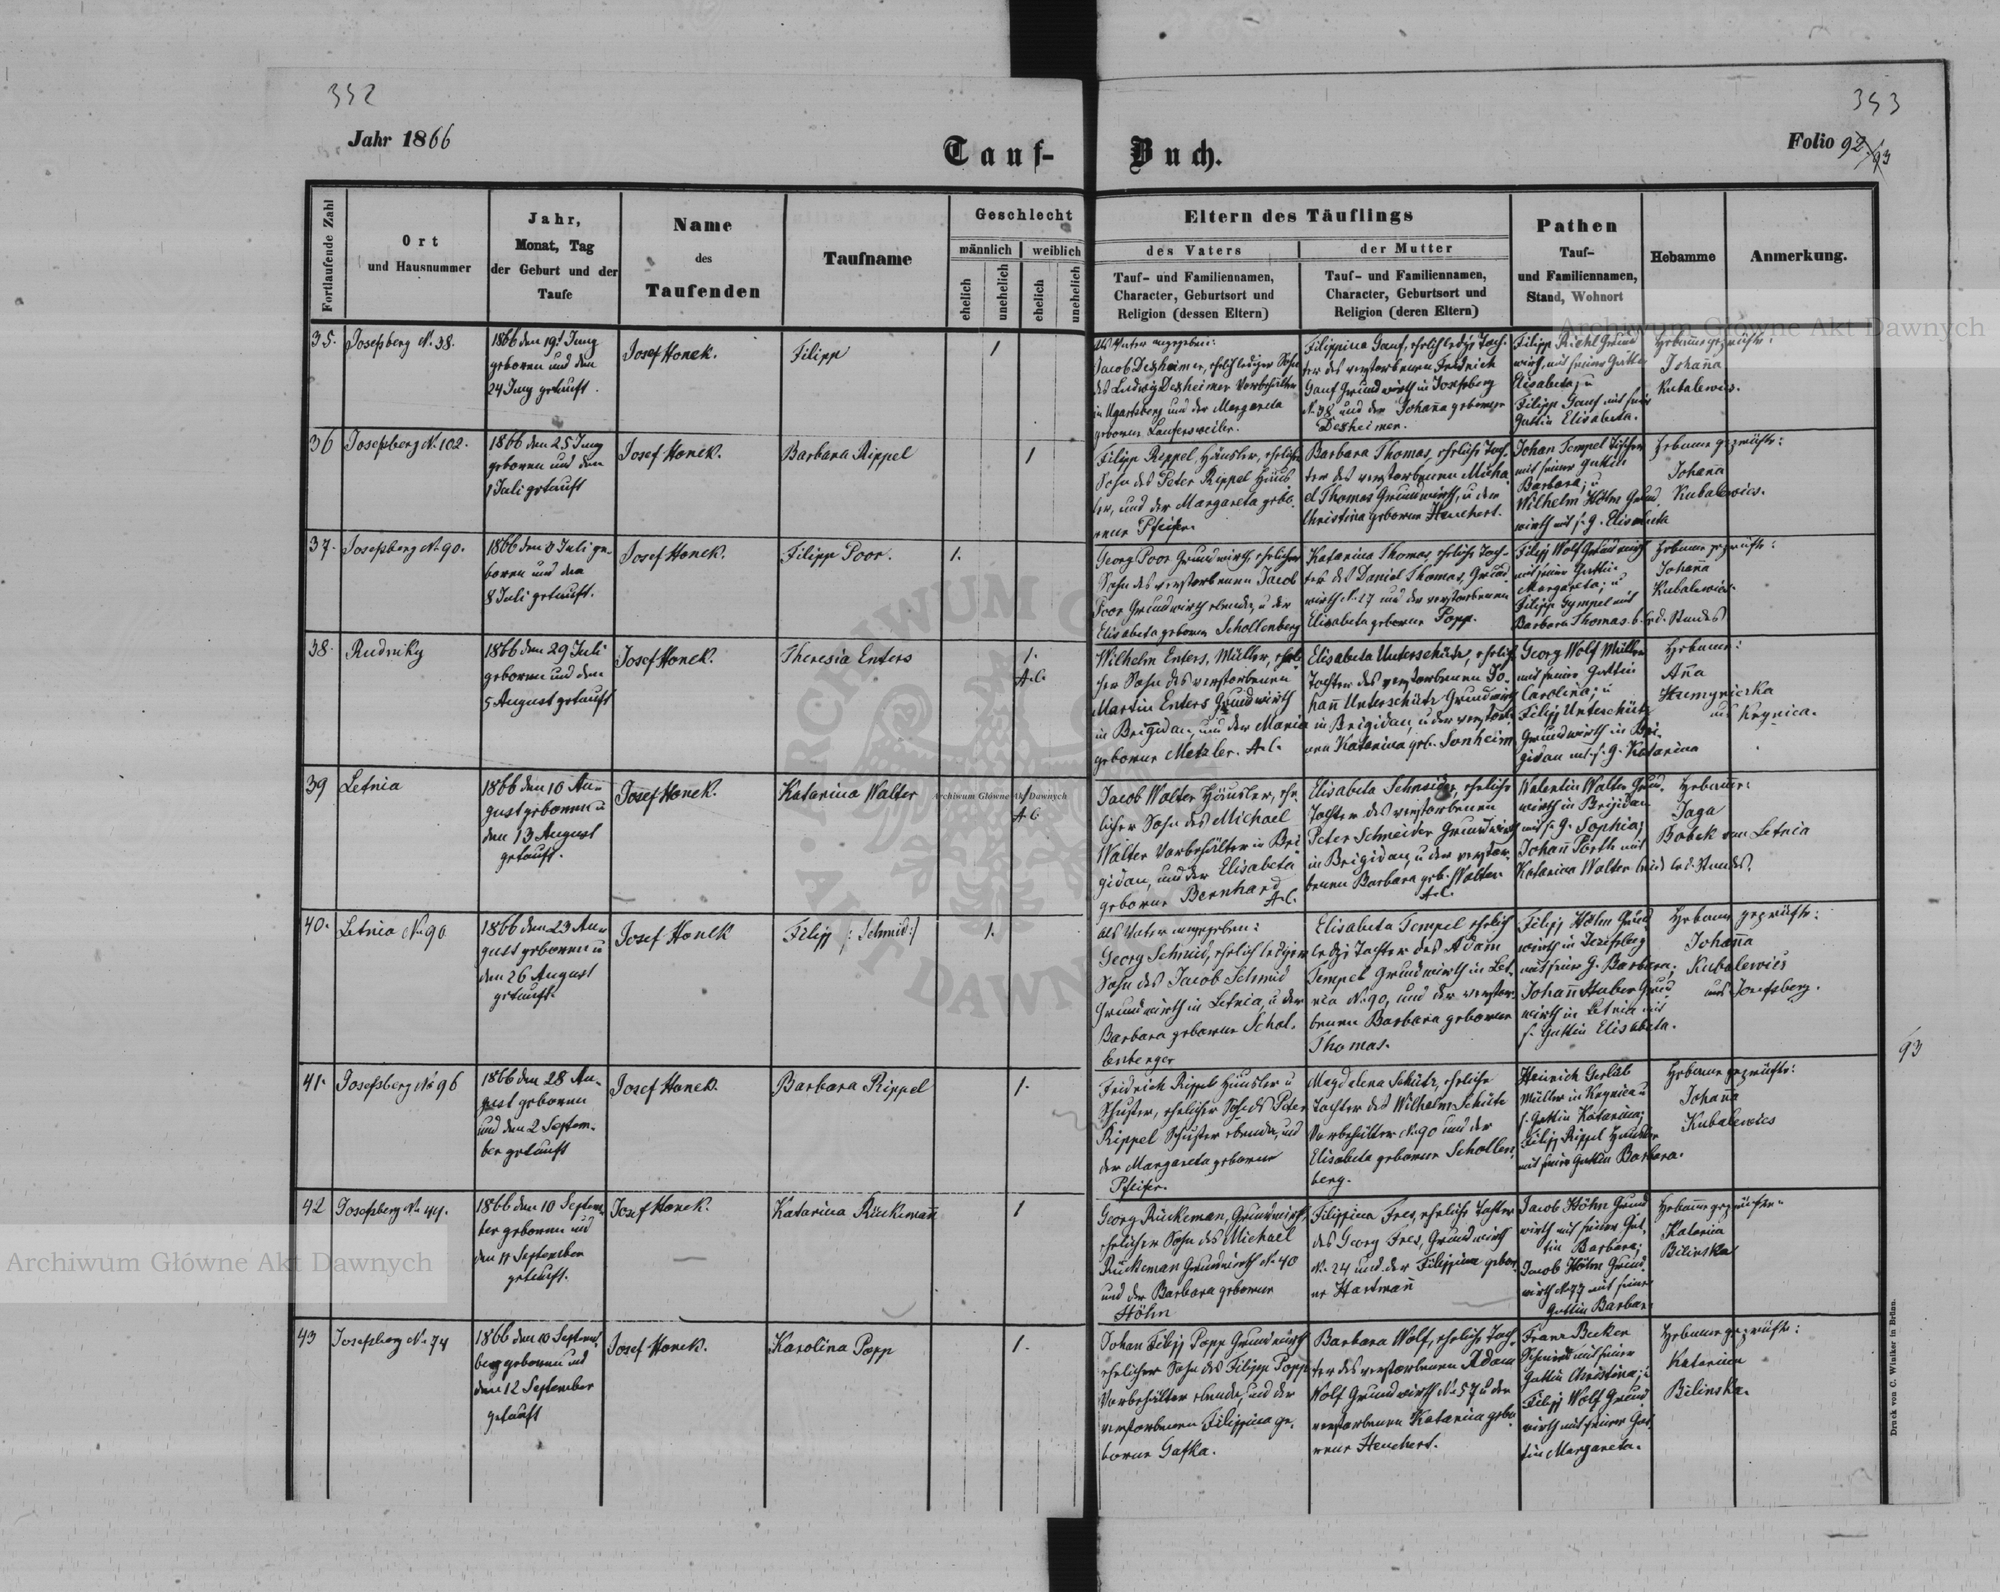 352
353
Jahr 1866
Tauf-Buch.
Folio 92/93
Fortlaufende Zahl
Ort
und Hausnummer
Jahr,
Monat, Tag
der Geburt und der
Taufe
Name
des
Taufenden
Taufname
Geschlecht
männlich
weiblich
ehelich
unehelich
ehelich
unehelich
Eltern des Täuflings
des Vaters
Tauf- und Familiennamen,
Character, Geburtsort und
Religion (dessen Eltern)
der Mutter
Tauf- und Familiennamen,
Character, Geburtsort und
Religion (deren Eltern)
Pathen
Tauf-
und Familiennamen,
Stand, Wohnort
Hebamme
Anmerkung.
35.
Josefsberg N. 38.
1866 den 19. Juny
geboren und den
24 Juny getauft.
Josef Honek.
Filipp
1
Als Vater angegeben:
Jacob Dexheimer, ehelich lediger Sohn
des Ludwig Dexheimer Vorbehälter
in Ugartsberg und der Margareta
geborne Laufersweiler.
Filippina Ganf, ehelich ledige Toch-
ter des verstorbenen Friedrich
Ganf Grundwirth in Josefsberg
N. 38 und der Johanna geborene
Dexheimer.
Filipp Richl Grund
wirth, mit seiner Gattin
Elisabeta; u
Filipp Ganf mit seiner
Gattin Elisabeta.
Hebame geprüfte:
Johanna
Kubalewics.
36
Josefsberg N. 102.
1866 den 25 Juny
geboren und den
1 Juli getauft
Josef Honek.
Barbara Rippel
1
Filipp Rippel, Häusler, ehelicher
Sohn des Peter Rippel Häus
ler, und der Margareta gebo-
rene Pfeifer.
Barbara Thomas, eheliche Toch-
ter des verstorbenen Micha
el Thomas Grundwirth, u der
Christina geborene Henchert.
Johan Tempel Tischler
mit seiner Gattin
Barbara; u
Wilhelm Höhn Grund
wirth mit s. G. Elisabeta
Hebame geprüfte:
Johanna
Kubalewics.
37.
Josefsberg N. 90.
1866 den 3 Juli ge-
boren und den
8 Juli getauft.
Josef Honek.
Filipp Poor.
1.
Georg Poor Grundwirth ehelicher
Sohn des verstorbenen Jacob
Poor Grundwirth ebenda, u der
Elisabeta geborene Schollenberg
Katarina Thomas eheliche Toch-
ter des Daniel Thomas, Grund
wirth N. 27 und der verstorbenen
Elisabeta geborene Popp.
Filipp Wolf Grundwirth
mit seiner Gattin
Margareta; u
Filipp Gympel mit
Barbara Thomas b. led. Standes
Hebame geprüfte:
Johanna
Kubalewics.
38.
Rudniky
1866 den 29 Juli
geboren und den
5 August getauft
Josef Honek.
Theresia Enters
1.
A.C.
Wilhelm Enters, Müller, eheli
cher Sohn des verstorbenen
Martin Enters Grundwirth
in Brigidau, und der Maria
geborne Metzler. A.C.
Elisabeta Unterschütz, eheliche
Tochter des verstorbenen Jo-
hann Unterschütz Grundwirth
in Brigidau, u der verstorbe
nen Katarina geb. Sonheim.
Georg Wolf Müller
mit seiner Gattin
Carolina; u
Filipp Unterschütz
Grundwirth in Bri-
gidau mit s. G. Katarina
Hebame:
Anna
aus Krynica.
39
Letnia
1866 den 10 Au-
gust geboren u
den 13 August
getauft.
Josef Honek.
Katarina Walter
1
A.C.
Jacob Walter Häusler, ehe-
licher Sohn des Michael
Walter Vorbehälter in Bri
gidau, und der Elisabeta
geborne Bernhard A.C.
Elisabeta Schneider, eheliche
Tochter des verstorbenen
Peter Schneider Grundwirth
in Brigidau, u der verstor-
benen Barbara geb. Walter.
A.C.
Valentin Walter Grund
wirth in Brigidau
mit s. G. Sophia;
Johann Porth mit
Katarina Walter beid. led. Standes.
Hebame:
Jaga
Bobek von Letnia
40.
Letnia N. 90
1866 den 23 Au-
gust geboren u
den 26 August
getauft.
Josef Honek
Filipp /: Schmid :/
1.
Als Vater angegeben:
Georg Schmid, ehelich lediger
Sohn des Jacob Schmid
Grundwirth in Letnia, u der
Barbara geborne Schol-
lenberger
Elisabeta Tempel ehelich
ledige Tochter des Adam
Tempel Grundwirth in Let-
nia N. 90, und der verstor-
benen Barbara geborene
Thomas.
Filipp Höhn Grund
wirth in Josefsberg
mit seiner G. Barbara;
Johann Huber Grund
wirth in Letnia mit
s. Gattin Elisabeta.
Hebame geprüfte:
Johanna
Kubalewics
aus Josefsberg.
93
41.
Josefsberg N. 96
1866 den 28 Au-
gust geboren
und den 2 Septem-
ber getauft
Josef Honek.
Barbara Rippel
1.
Fridrich Rippel Häusler u
Schuster, ehelicher Sohn des Peter
Rippel Schuster ebenda, und
der Margareta geborene
Pfeifer.
Magdalena Schütz, eheliche
Tochter des Wilhelm Schütz
Vorbehälter N. 90 und der
Elisabeta geborene Schollen-
berg.
Heinrich Gerlat
Müller in Krynica u
s. Gattin Katarina;
Filipp Rippel Häusler
mit seiner Gattin Barbara.
Hebame geprüfte:
Johanna
Kubalewics
42
Josefsberg N. 44.
1866 den 10 Septem-
ber geboren und
den 11 September
getauft.
Josef Honek.
Katarina Rückemann
1
Georg Rückeman, Grundwirth,
ehelicher Sohn des Michael
Rückeman Grundwirth N. 40
und der Barbara geborene
Höhn
Filippina Fres, eheliche Tochter
des Georg Fres, Grundwirth
N. 24 und der Filippina gebor-
ne Hartmann
Jacob Höhn Grund
wirth mit seiner Gat-
tin Barbara;
Jacob Höhn Grund
wirth N. 77 mit seiner
Gattin Barbar.
Hebame geprüfte:
Katarina
Bilinska
43
Josefsberg N. 74
1866 den 10 Septem-
ber geboren und
den 12 September
getauft
Josef Honek.
Karolina Popp
1.
Johan Filipp Popp Grundwirth
ehelicher Sohn des Filipp Popp
Vorbehälter ebenda, und der
verstorbenen Filippina ge-
borne Gafka.
Barbara Wolf, eheliche Toch-
ter des verstorbenen Adam
Wolf Grundwirth N. 57 u der
verstorbenen Katarina gebo
rene Henchert.
Franz Becker
Schmied mit seiner
Gattin Christina; u
Filipp Wolf Grund
wirth mit seiner Gat-
tin Margareta.
Hebame geprüfte:
Katarina
Bilinska.
Druck von C. Winiker in Brünn.
Archiwum Główne Akt Dawnych
Archiwum Główne Akt Dawnych
Archiwum Główne Akt Dawnych
ARCHIWUM GŁÓWNE AKT DAWNYCH